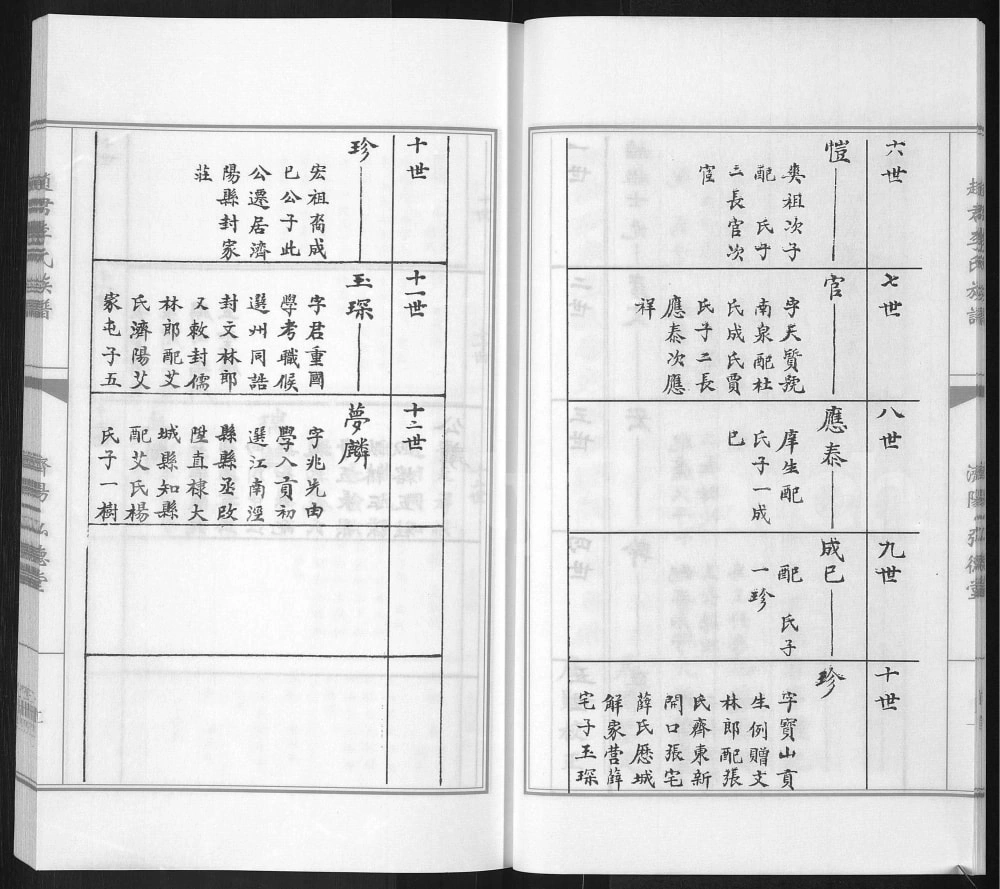 六世
愷
奭祖次子
配 氏子
二長官次
宦
七世
官
字天賢號
南泉配杜
氏成氏賈
氏子二長
應泰次應
祥
八世
應泰
庠生配
氏子一成
巳
九世
成巳
配 氏子
一珍
十世
珍
字寶山貢
生例贈文
林郎配張
氏齊東新
開口張宅
薛氏歷城
解家營薛
宅子玉琛
趙君李氏族譜
濟陽弘德堂
十世
珍
宏祖裔成
巳公子此
公遷居濟
陽縣封家
莊
十一世
玉琛
字君重國
學考職候
選州同誥
封文林郎
又敕封儒
林郎配艾
氏濟陽艾
家屯子五
十二世
夢麟
字兆光由
學入貢初
選江南涇
縣縣丞改
陞直棣大
城縣知縣
配艾氏楊
氏子一樹
趙君李氏族譜
濟陽弘德堂